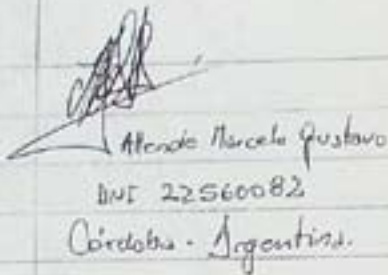 Allende Marcelo Gustavo
DNI 22560082
Córdoba - Argentina.